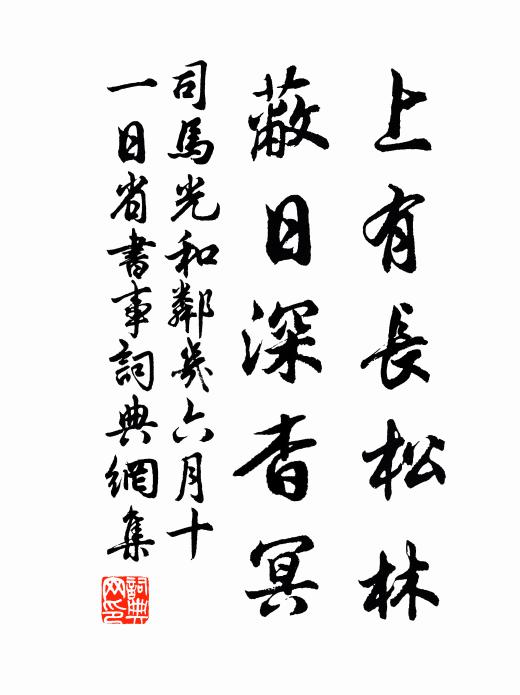 上有長松林
蔽日深杳冥
司馬光和鄰幾六月十
一日省書事詞典網集
詞典
网印